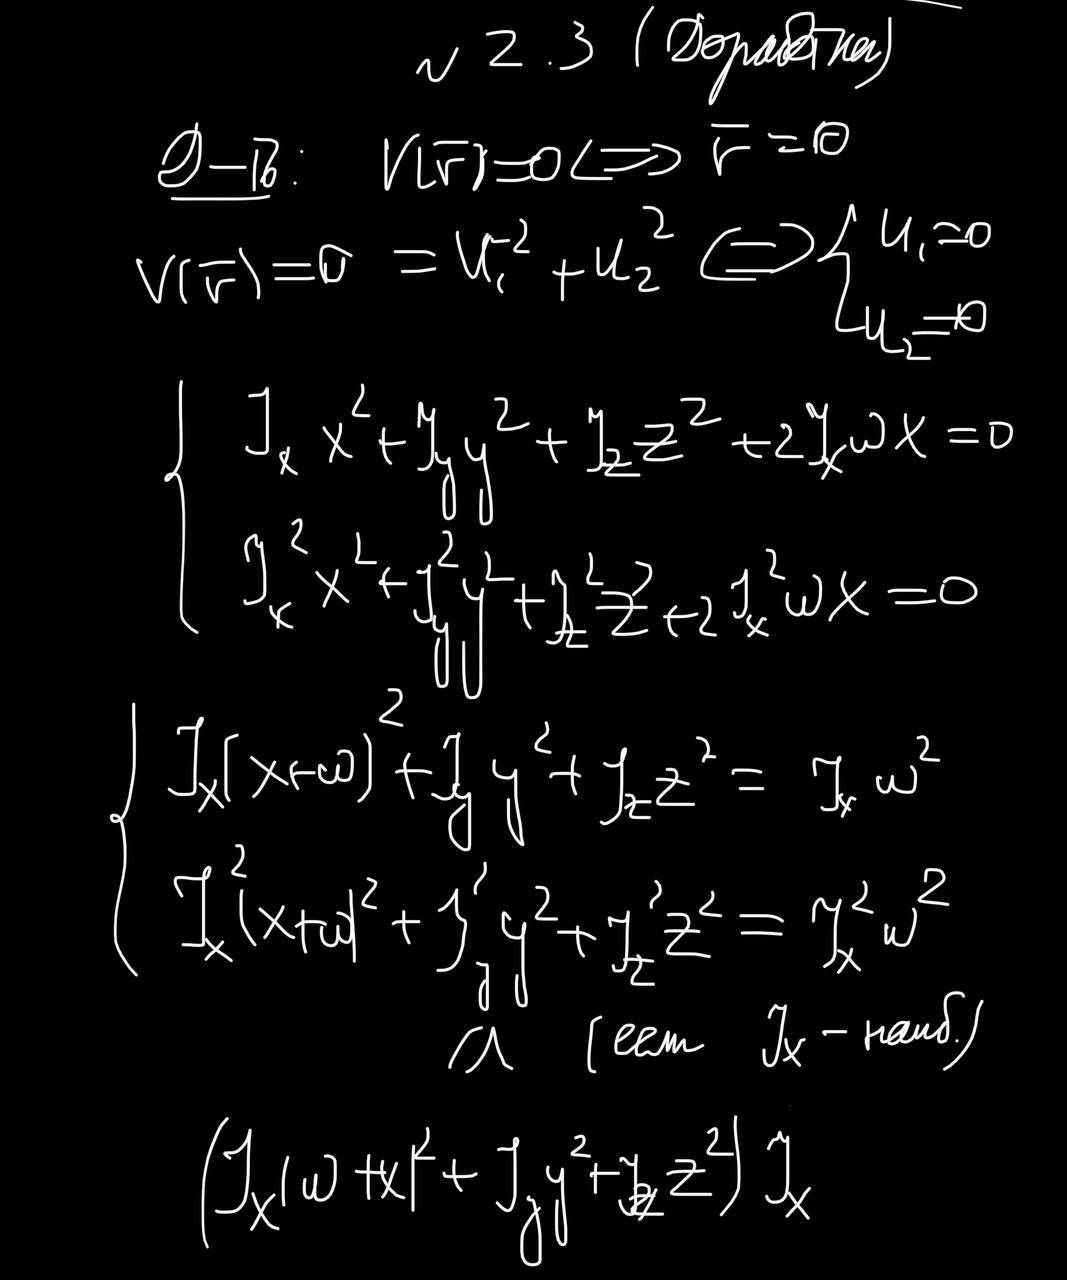 № 2.3 (Доработка)
Д-во: V(r̄)=0 <=> r̄=0
V(r̄)=0 = U₁² + U₂² <=> { U₁=0
U₂=0
{ Jₓ x² + J_y y² + J_z z² + 2Jₓωx = 0
Jₓ² x² + J_y² y² + J_z² z² + 2Jₓ²ωx = 0
{ Jₓ(x+ω)² + J_y y² + J_z z² = Jₓ ω²
Jₓ²(x+ω)² + J_y² y² + J_z² z² = Jₓ² ω²
∧ (если Jₓ - наиб.)
(Jₓ(ω+x)² + J_y y² + J_z z²) Jₓ